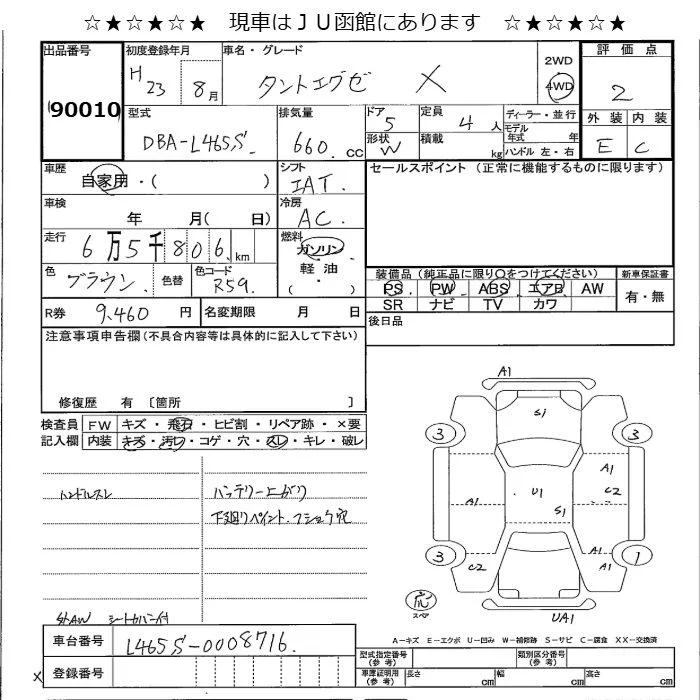 ☆★☆★☆★☆ 現車はＪＵ函館にあります ☆★☆★☆★☆
出品番号 初度登録年月 車名・グレード 評価点
90010
H23 8月 タントエグゼ X 2WD 4WD 2
型式 排気量 ドア 定員 ディーラー・並行 外装 内装
DBA-L465S 660 CC 5 4人 モデル年式 年 E C
形状 W 積載 kg ハンドル 左・右
車歴 自家用・( )
シフト IAT
セールスポイント (正常に機能するものに限ります)
車検 年 月( 日)
冷房 AC
走行 6万5千806km
燃料 ガソリン・軽油・( )
色 ブラウン 色替 色コード R59
装備品(純正品に限り○をつけてください) 新車保証書
PS PW ABS エアB AW 有・無
SR ナビ TV カワ
R券 9,460円 名変期限 月 日
後日品
注意事項申告欄(不具合内容等は具体的に記入して下さい)
修復歴 有 〔箇所 〕
検査員記入欄 FW キズ・飛石・ヒビ割・リペア跡・×要
内装 キズ・汚レ・コゲ・穴・スレ・キレ・破レ
ハンドルスレ バッテリー上がり
下廻りペイント.
シートカバー付
A1
S1
3 3
A1
A1 U1 C2
S1
A1
3 C2 1
スペア
UA1
A－キズ E－エクボ U－凹み W－補修跡 S－サビ C－腐食 XX－交換済
車台番号 L465S-0008716
型式指定番号(参考) 類別区分番号(参考)
x 登録番号
車庫証明用(参考) 長さ cm 幅 cm 高さ cm